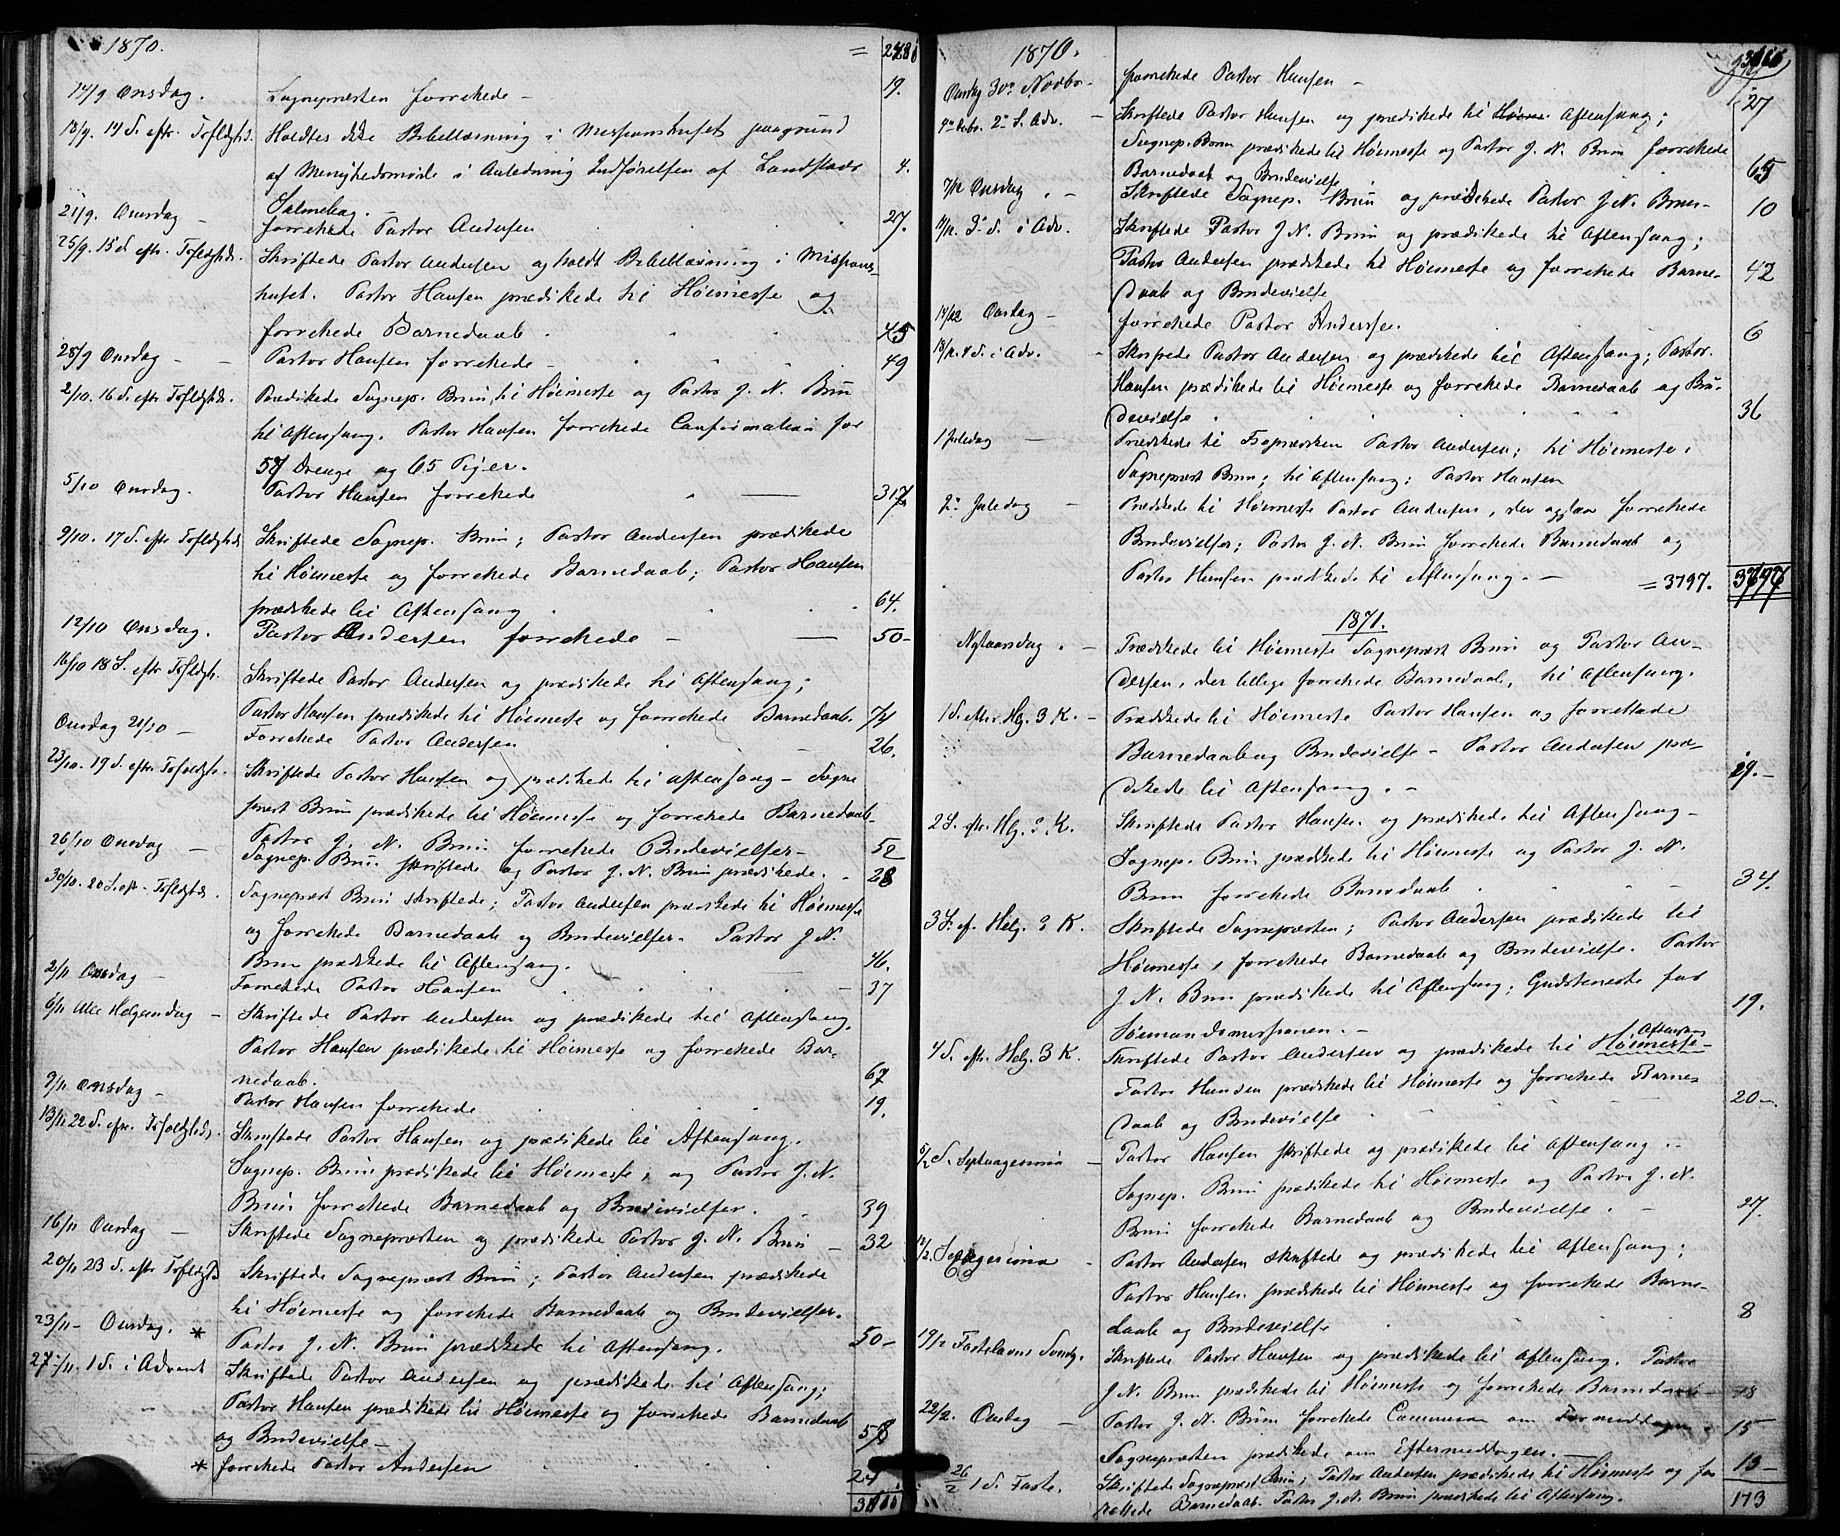 1870. = 2788
14/9 Onsdag. Sognepræsten forrettede — 19.
18/9. 14 S. eftr. Trefoldighd. Holdtes ikke Bibellæsning i Missionshuset paagrund
af Menighedsmøde i Anledning Indførelsen af Landstads 4.
Salmebog. —
21/9. Onsdag — forrettede Pastor Andersen 27.
25/9. 15 S. eftr. Trefoldighd. Skriftede Pastor Andersen og holdt Bibellæsning i Missions-
huset. Pastor Hansen prædikede til Høimesse og
forrettede Barnedaab. 45
28/9 Onsdag — Pastor Hansen forrettede — 49
2/10. 16 S. eftr. Trefoldighds. Prædikede Sognep. Brun til Høimesse og Pastor J. N. Brun
til Aftensang. Pastor Hansen forrettede Confirmation for
57 Drenge og 65 Piger.
5/10 Onsdag. Pastor Hansen forrettede — 317
9/10. 17 S. eftr. Trefoldighds. Skriftede Sognep. Brun; Pastor Andersen prædikede
til Høimesse og forrettede Barnedaab; Pastor Hansen
prædikede til Aftensang 64.
12/10 Onsdag. Pastor Andersen forrettede — 50—
16/10 18 S. eftr. Trefoldigh. Skriftede Pastor Andersen og prædikede til Aftensang;
Pastor Hansen prædikede til Høimesse og forrettede Barnedaab. 74
Onsdag 21/10 — Forrettede Pastor Andersen 26.
23/10. 19 S. eftr. Trefoldigh. Skriftede Pastor Hansen og prædikede til Aftensang — Sogne
præst Brun prædikede til Høimesse og forrettede Barnedaab.
Pastor J. N. Brun forrettede Brudevielser — 52
26/10 Onsdag — Sognep. Brun skriftede og Pastor J. N. Brun prædikede. 28
30/10. 20 S. eftr. Trefoldighds. Sognepræst Brun skriftede; Pastor Andersen prædikede til Høimesse
og forrettede Barnedaab og Brudevielser. Pastor J. N.
Brun prædikede til Aftensang. 46.
2/11 Onsdag — Forrettede Pastor Hansen — 37
6/11 Alle Helgensdag — Skriftede Pastor Andersen og prædikede til Aftensang.
Pastor Hansen prædikede til Høimesse og forrettede Bar-
nedaab. 67
9/11. Onsdag — Pastor Hansen forrettede 19.
13/11. 22 S. eftr. Trefoldighds. Skriftede Pastor Hansen og prædikede til Aftensang.
Sognep. Brun prædikede til Høimesse, og Pastor J. N.
Brun forrettede Barnedaab og Brudevielser. 39
16/11 Onsdag — Skriftede Sognepræsten og prædikede Pastor J. N. Brun — 32
20/11 23 S. eftr. Trefoldighd. Skriftede Sognepræst Brun; Pastor Andersen prædikede
til Høimesse og forrettede Barnedaab og Brudevielser.
23/11 — Onsdag. * Pastor J. N. Brun prædikede til Aftensang. 50—
27/11. 1 S. i Advent Skriftede Pastor Andersen og prædikede til Aftensang;
Pastor Hansen prædikede til Høimesse og forrettede Barnedaab
og Brudevielse — 58
* forrettede Pastor Andersen 24
1870.
Onsdag 30te Novbr. — forrettede Pastor Hansen — 27
4de Decbr. 2. S. Adv. — Skriftede Pastor Hansen og prædikede til Aftensang;
Sognep. Brun prædikede til Høimesse og Pastor J. N. Brun forrettede
Barnedaab og Brudevielse 65
7/12 Onsdag — Skriftede Sognep. Brun og prædikede Pastor J. N. Brun — 10
11/12. 3. S. i Adv. Skriftede Pastor J. N. Brun og prædikede til Aftensang;
Pastor Andersen prædikede til Høimesse og forrettede Barne-
daab og Brudevielse 42
14/12 Onsdag — forrettede Pastor Andersen. 6
18/12. 4 S. i Adv. Skriftede Pastor Andersen og prædikede til Aftensang; Pastor
Hansen prædikede til Høimesse og forrettede Barnedaab og Bru-
devielse 36
1 Juledag — Prædikede til Froprædiken Pastor Andersen; til Høimesse:
Sognepræst Brun; til Aftensang: Pastor Hansen
2. Juledag — Prædikede til Høimesse Pastor Andersen, der ogsaa forrettede
Brudevielser; Pastor J. N. Brun forrettede Barnedaab og
Pastor Hansen prædikede til Aftensang. — = 3797.
1871.
Nytaarsdag — Prædikede til Høimesse Sognepræst Brun og Pastor An-
dersen, der tillige forrettede Barnedaab, til Aftensang.
1 S. efter Hlg. 3 K. — Prædikede til Høimesse Pastor Hansen og forrettede
Barnedaab og Brudevielse — Pastor Andersen præ-
dikede til Aftensang. — 29. —
2 S. eftr. Hlg. 3 K. Skriftede Pastor Hansen og prædikede til Aftensang —
Sognep. Brun prædikede til Høimesse og Pastor J. N.
Brun forrettede Barnedaab 34.
3 S. ef. Helg. 3 K. Skriftede Sognepræsten; Pastor Andersen prædikede til
Høimesse, forrettede Barnedaab og Brudevielse. Pastor
J. N. Brun prædikede til Aftensang; Gudstieneste for
Sømandsmissionen. — 19.
4 S. eftr. Helg. 3 K. Skriftede Pastor Andersen og prædikede til Høimesse — Aftensang
Pastor Hansen prædikede til Høimesse og forrettede Barne-
daab og Brudevielse 20—.
5/2 S. Septuagesima — Pastor Hansen skriftede og prædikede til Aftensang. —
Sognep. Brun prædikede til Høimesse og Pastor J. N.
Brun forrettede Barnedaab og Brudevielse. 27.
12/2. Sexagesima — Pastor Andersen skriftede og prædikede til Aftensang;
Pastor Hansen prædikede til Høimesse og forrettede Barne-
daab og Brudevielse 8
19/2 Fastelavns Søndg. Skriftede Pastor Hansen og prædikede til Aftensang. Pastor
J. N. Brun prædikede til Høimesse og forrettede Barnedaab — 18
22/2. Onsdag — Pastor J. N. Brun forrettede Communion om Formiddagen 15
Sognepræsten prædikede om Eftermiddagen. — 13—
26/2 1 S. Faste. Skriftede Sognepræst Brun; Pastor Andersen prædikede til Høimesse og for
rettede Barnedaab. Pastor J. N. Brun prædikede til Aftensang. 173